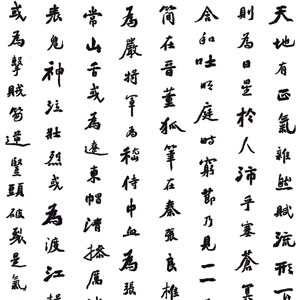 天地有正氣雜然賦流形下
則為日星於人沛乎塞蒼冥
含和吐明庭時窮節乃見一一
簡在晉董狐筆在秦張良椎
為嚴將軍為嵇侍中血為張
常山舌或為遼東帽清操厲
表鬼神泣壯烈或為渡江楫
或為擊賊笏逆豎頭破裂是氣